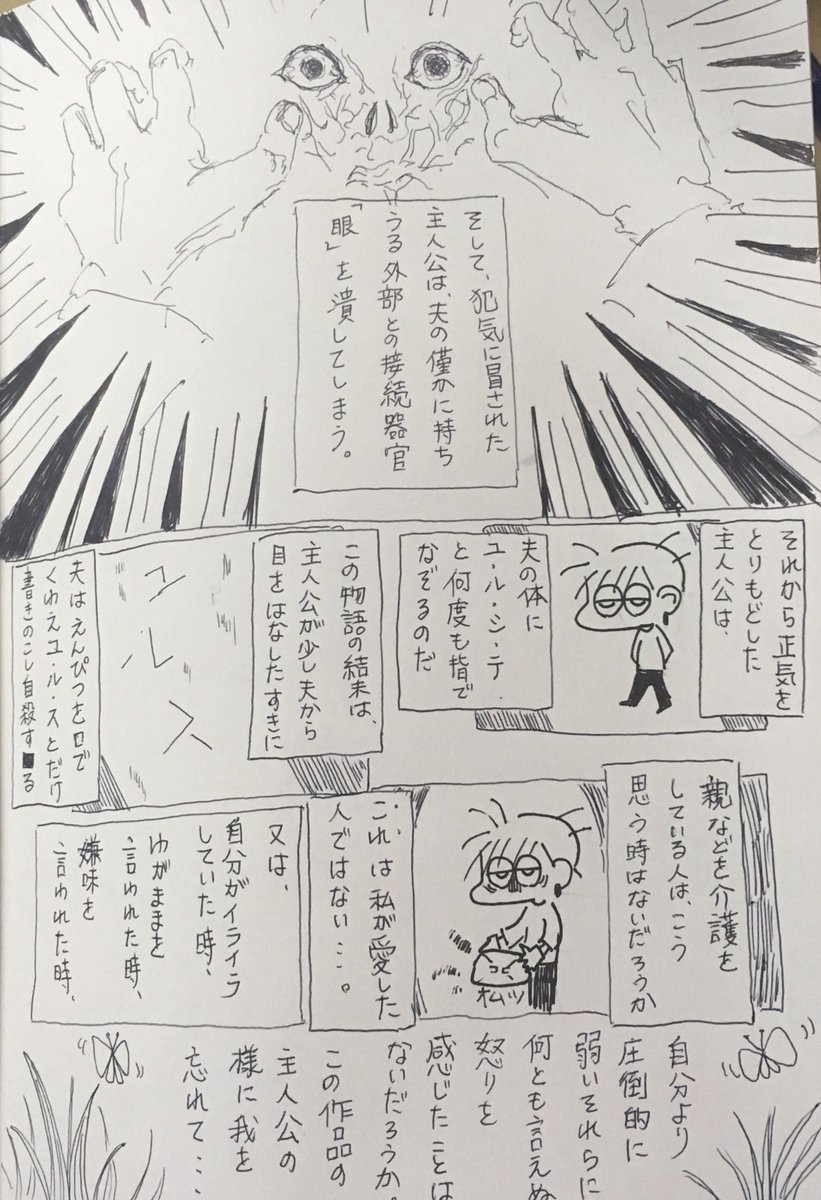 そして、犯気に冒された
主人公は、夫の僅かに持ち
うる外部との接続器官
「眼」を潰してしまう。
それから正気を
とりもどした
主人公は、
夫の体に
ユ・ル・シ・テ
と何度も指で
なぞるのだ
この物語の結末は、
主人公が少し夫から
目をはなしたすきに
ユルス
夫はえんぴつを口で
くわえユ・ル・スとだけ
書きのこし自殺する
親などを介護を
している人は、こう
思う時はないだろうか
私ッ
これは私が愛した
人ではない…。
又は、
自分がイライラ
していた時、
わがままを
言われた時、
嫌味を
言われた時、
自分より
圧倒的に
弱いそれらに
何とも言えぬ
怒りを
感じたことは
ないだろうか。
この作品の
主人公の
様に我を
忘れて…